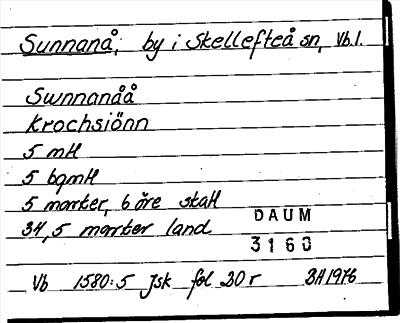 Sunnanå, by i Skellefteå sn, Vb.l.
Swnnanåå
Krochsiönn
5 mtl
5 bqmtl
5 marker, 6 öre skatt
34,5 marker land
DAUM
3160
Vb 1580:5 Jsk fol 20 r BH 1976